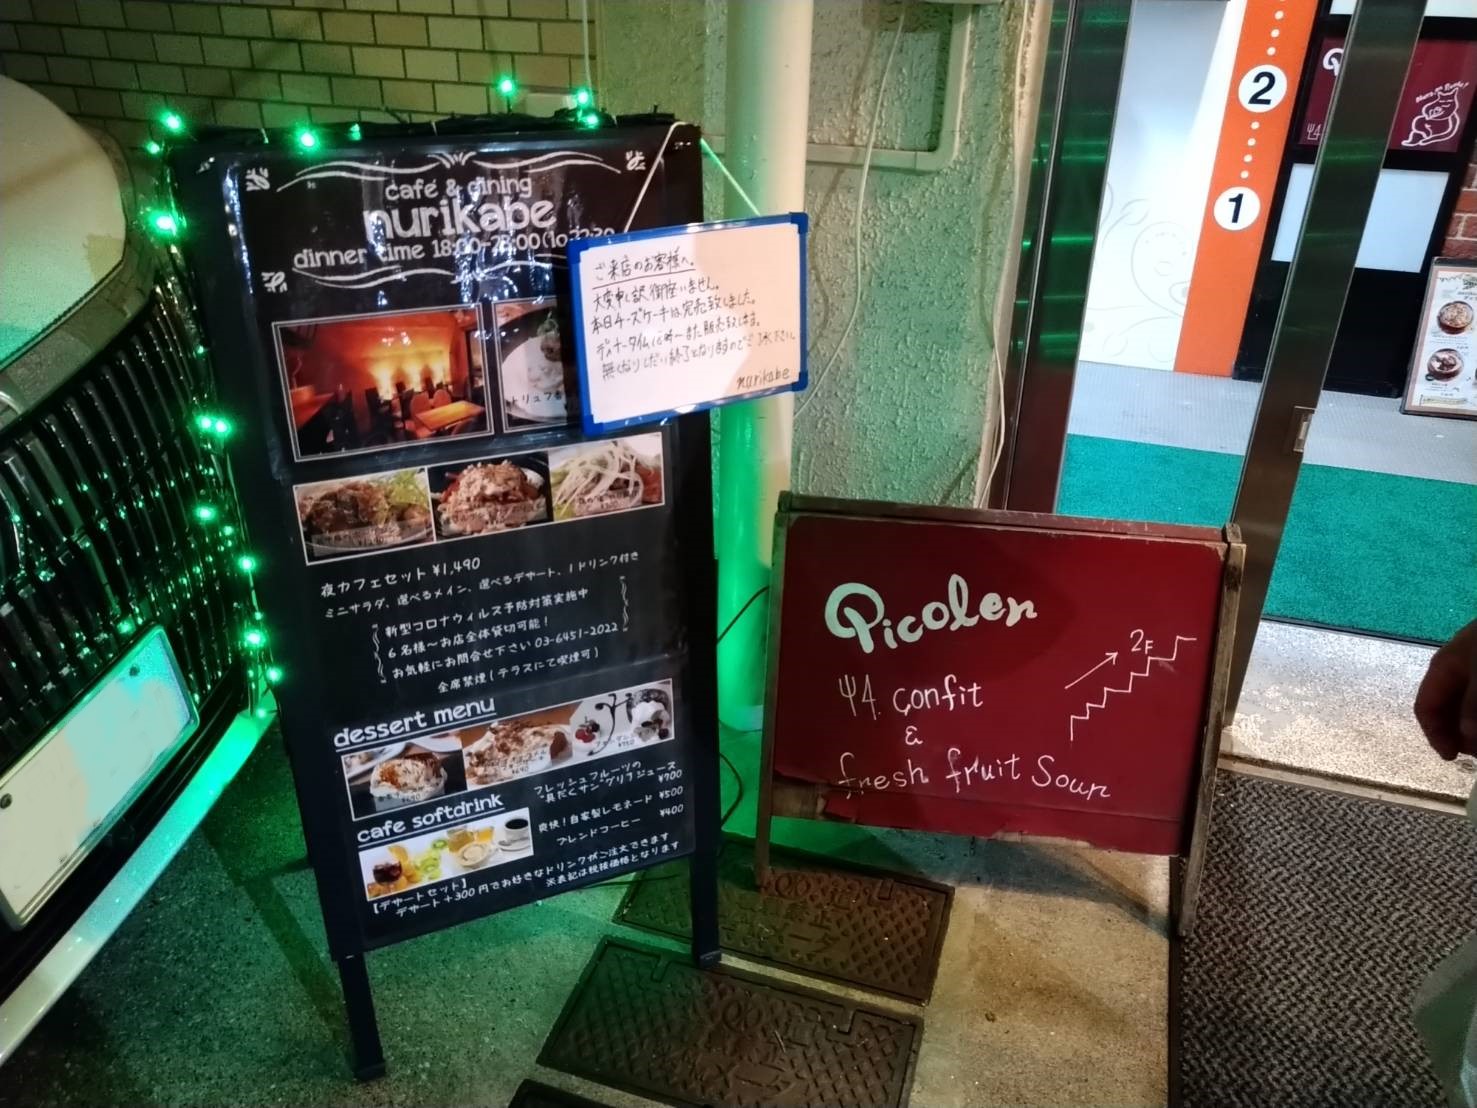 cafe & dining
nurikabe
dinner time 18:00-23:00(lo.22:30
ご来店のお客様へ。
大変申し訳御座いません。
本日チーズケーキは完売致しました。
ディナータイム18時〜また販売致します。
無くなりしだい終了となりますのでご了承下さい。
nurikabe
トリュフ香
夜カフェセット ¥1,490
ミニサラダ、選べるメイン、選べるデザート、1ドリンク付き
新型コロナウィルス予防対策実施中
6名様〜お店全体貸切可能！
お気軽にお問合せ下さい 03-6451-2022
全席禁煙（テラスにて喫煙可）
dessert menu
cafe softdrink
フレッシュフルーツの
"具だくサン"グリアジュース ¥700
爽快！自家製レモネード ¥500
ブレンドコーヒー ¥400
【デザートセット】
デザート+300円でお好きなドリンクがご注文できます
※表記は税抜価格となります
Picolen
ψ4. confit
&
fresh fruit Sour
2F
2
1